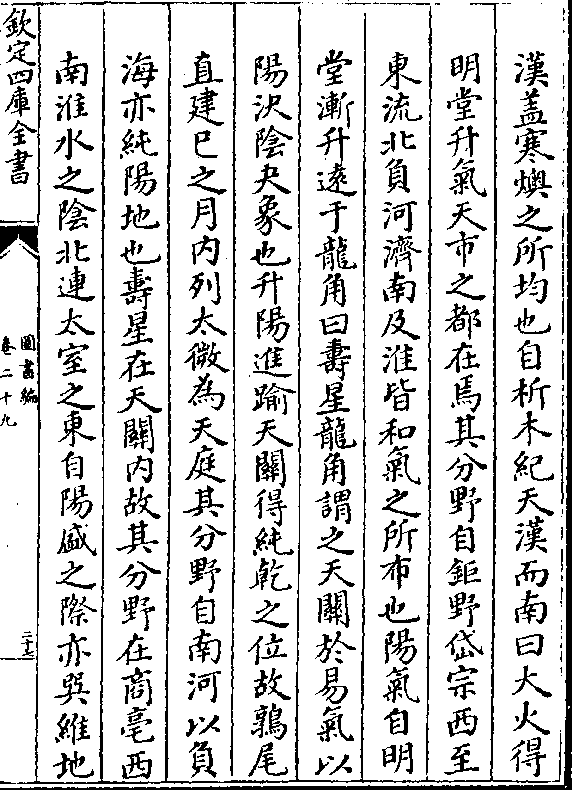 漢盖寒燠之所均也自析木紀天漢而南曰大火得
明堂升氣天市之都在焉其分野自鉅野岱宗西至
東流北負河濟南及淮皆和氣之所布也陽氣自明
堂漸升逹于龍角曰壽星龍角謂之天關於易氣以
陽決陰夬象也升陽進踰天關得純乾之位故鶉尾
直建巳之月内列太微為天庭其分野自南河以負
海亦純陽地也壽星在天關内故其分野在商亳西
南淮水之陰北連太室之東自陽盛之際亦巽維地
欽定四庫全書
圖書編
卷二十九